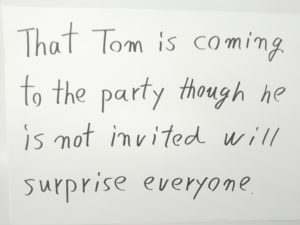 That Tom is coming
to the party though he
is not invited will
surprise everyone.